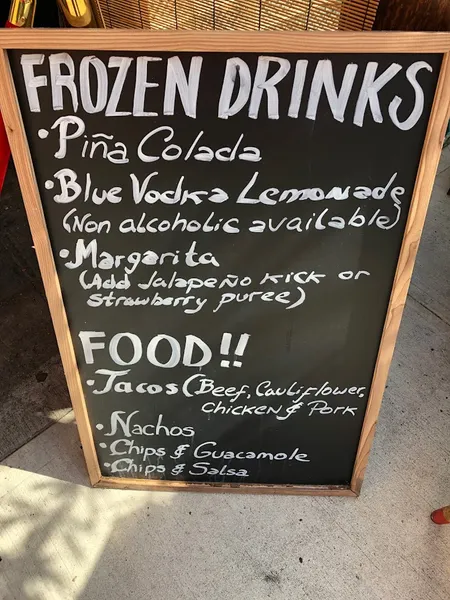 FROZEN DRINKS
• Piña Colada
• Blue Vodka Lemonade
(Non alcoholic available)
• Margarita
(Add Jalapeño kick or
strawberry puree)
FOOD!!
• Tacos (Beef, Cauliflower,
Chicken & Pork
• Nachos
• Chips & Guacamole
• Chips & Salsa